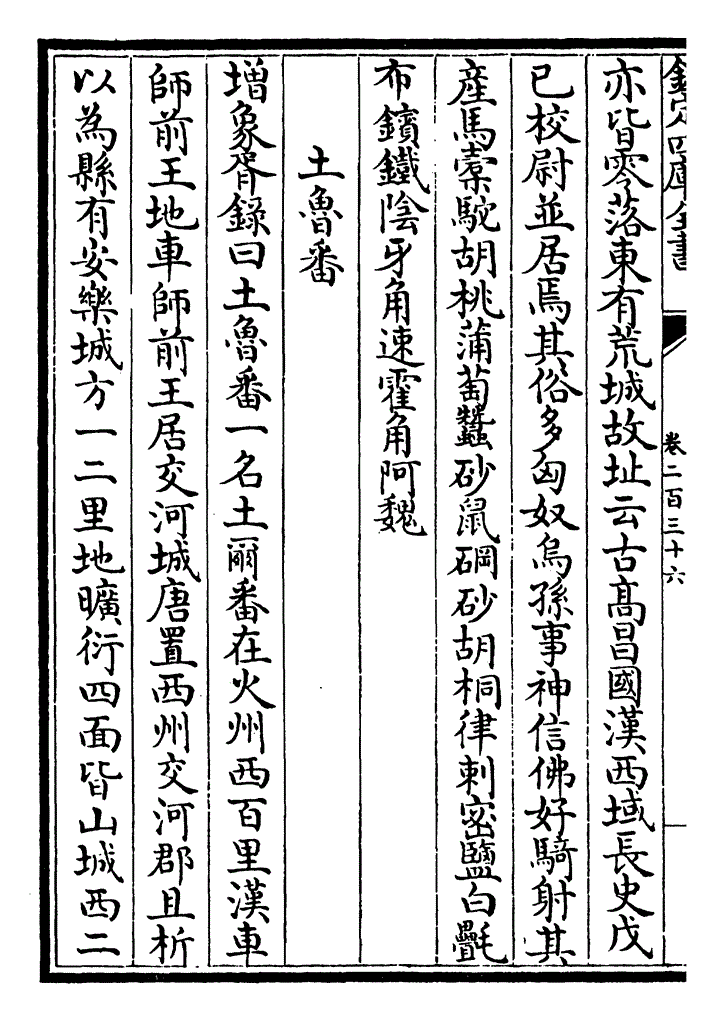 欽定四庫全書
卷二百三十六
亦皆零落東有荒城故址云古髙昌國漢西域長史戊
已校尉並居焉其俗多匈奴烏孫事神信佛好騎射其
產馬橐駝胡桃蒲萄蠶砂鼠碙砂胡桐律刺密鹽白㲲
布鑌鐵陰牙角速霍角阿魏
土魯番
増象胥錄曰土魯番一名土爾番在火州西百里漢車
師前王地車師前王居交河城唐置西州交河郡且析
以為縣有安樂城方一二里地曠衍四面皆山城西二